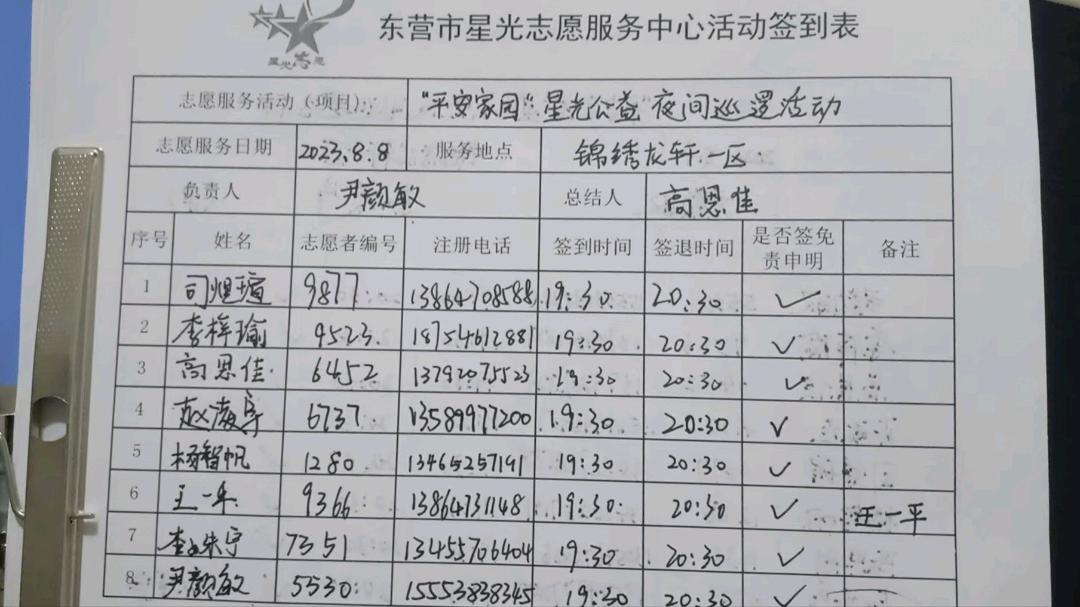 星光志愿
东营市星光志愿服务中心活动签到表
志愿服务活动（项目）： "平安家园"星光公益 夜间巡逻活动
志愿服务日期 2023.8.8 服务地点 锦绣龙轩一区
负责人 尹颜敏 总结人 高恩佳
序号 姓名 志愿者编号 注册电话 签到时间 签退时间 是否签免责申明 备注
1 司煜瑄 9877 13864708588 19:30 20:30 ✓
2 李梓瑜 9523 18754612881 19:30 20:30 ✓
3 高恩佳 6452 13792075523 19:30 20:30 ✓
4 赵 6737 13589977200 19:30 20:30 ✓
5 杨智帆 1280 13465257191 19:30 20:30 ✓
6 王一平 9366 13864731148 19:30 20:30 ✓ 王一平
7 7351 13455706404 19:30 20:30 ✓
8 尹颜敏 5530 15553838345 19:30 20:30 ✓